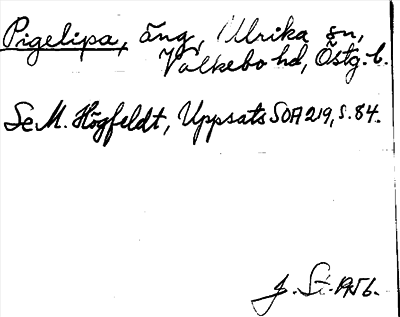 Pigelipa, äng, Ulrika sn,
Valkebo hd, Östg. l.
Se M. Högfeldt, Uppsats SOA 219, s. 84.
J. St. 1956.